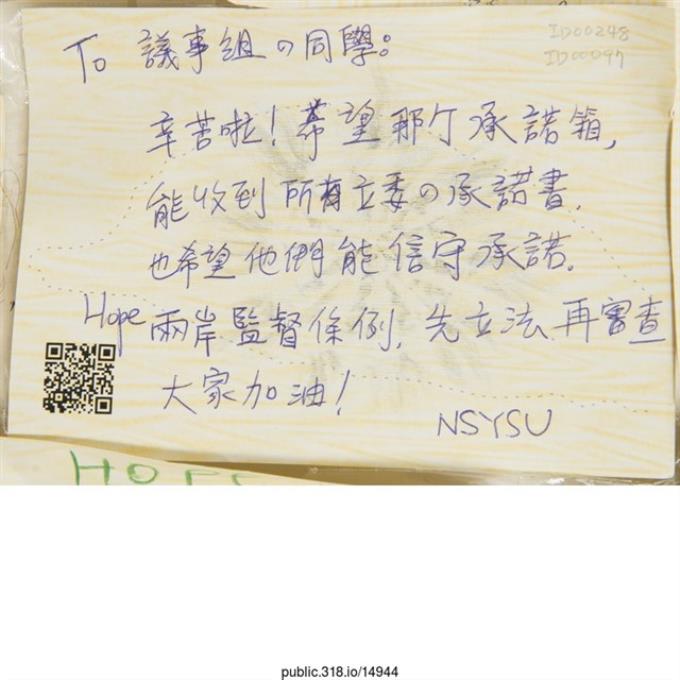 ID00248
ID00097
To 議事組の同學。
辛苦啦!希望那个承諾箱,
能收到所有立委の承諾書,
也希望他們能信守承諾。
Hope 兩岸監督條例,先立法再審查
大家加油!
NSYSU
HOPE
public.318.io/14944